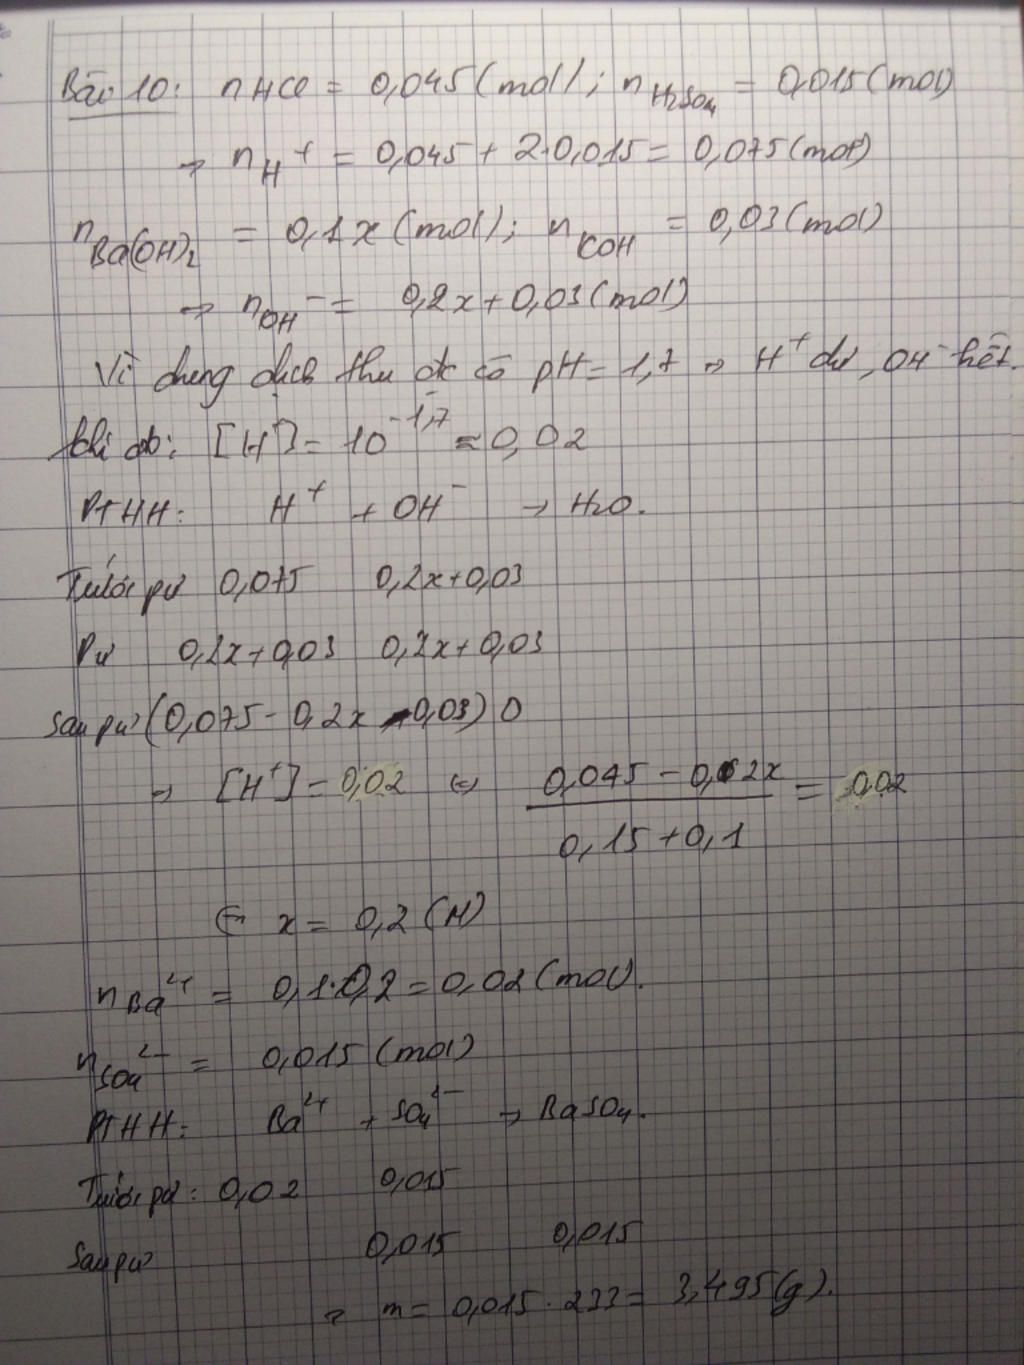 Bài 10: nHCl = 0,045 (mol); nH2SO4 = 0,015 (mol)
→ nH+ = 0,045 + 2.0,015 = 0,075 (mol)
nBa(OH)2 = 0,1x (mol); nKOH = 0,03 (mol)
→ nOH- = 0,2x + 0,03 (mol)
Vì dung dịch thu đc có pH = 1,7 → H+ dư, OH- hết.
Khi đó: [H+] = 10^-1,7 ≈ 0,02
PTHH: H+ + OH- → H2O.
Trước pư 0,075 0,2x+0,03
Pư 0,2x+0,03 0,2x+0,03
Sau pư (0,075 - 0,2x - 0,03) 0
→ [H+] = 0,02 ⇔ (0,045 - 0,2x)/(0,15 + 0,1) = 0,02
⇔ x = 0,2 (M)
nBa2+ = 0,1.0,2 = 0,02 (mol).
nSO42- = 0,015 (mol)
PTHH: Ba2+ + SO42- → BaSO4.
Trước pư: 0,02 0,015
Sau pư 0,015 0,015
→ m = 0,015.233 = 3,495 (g).